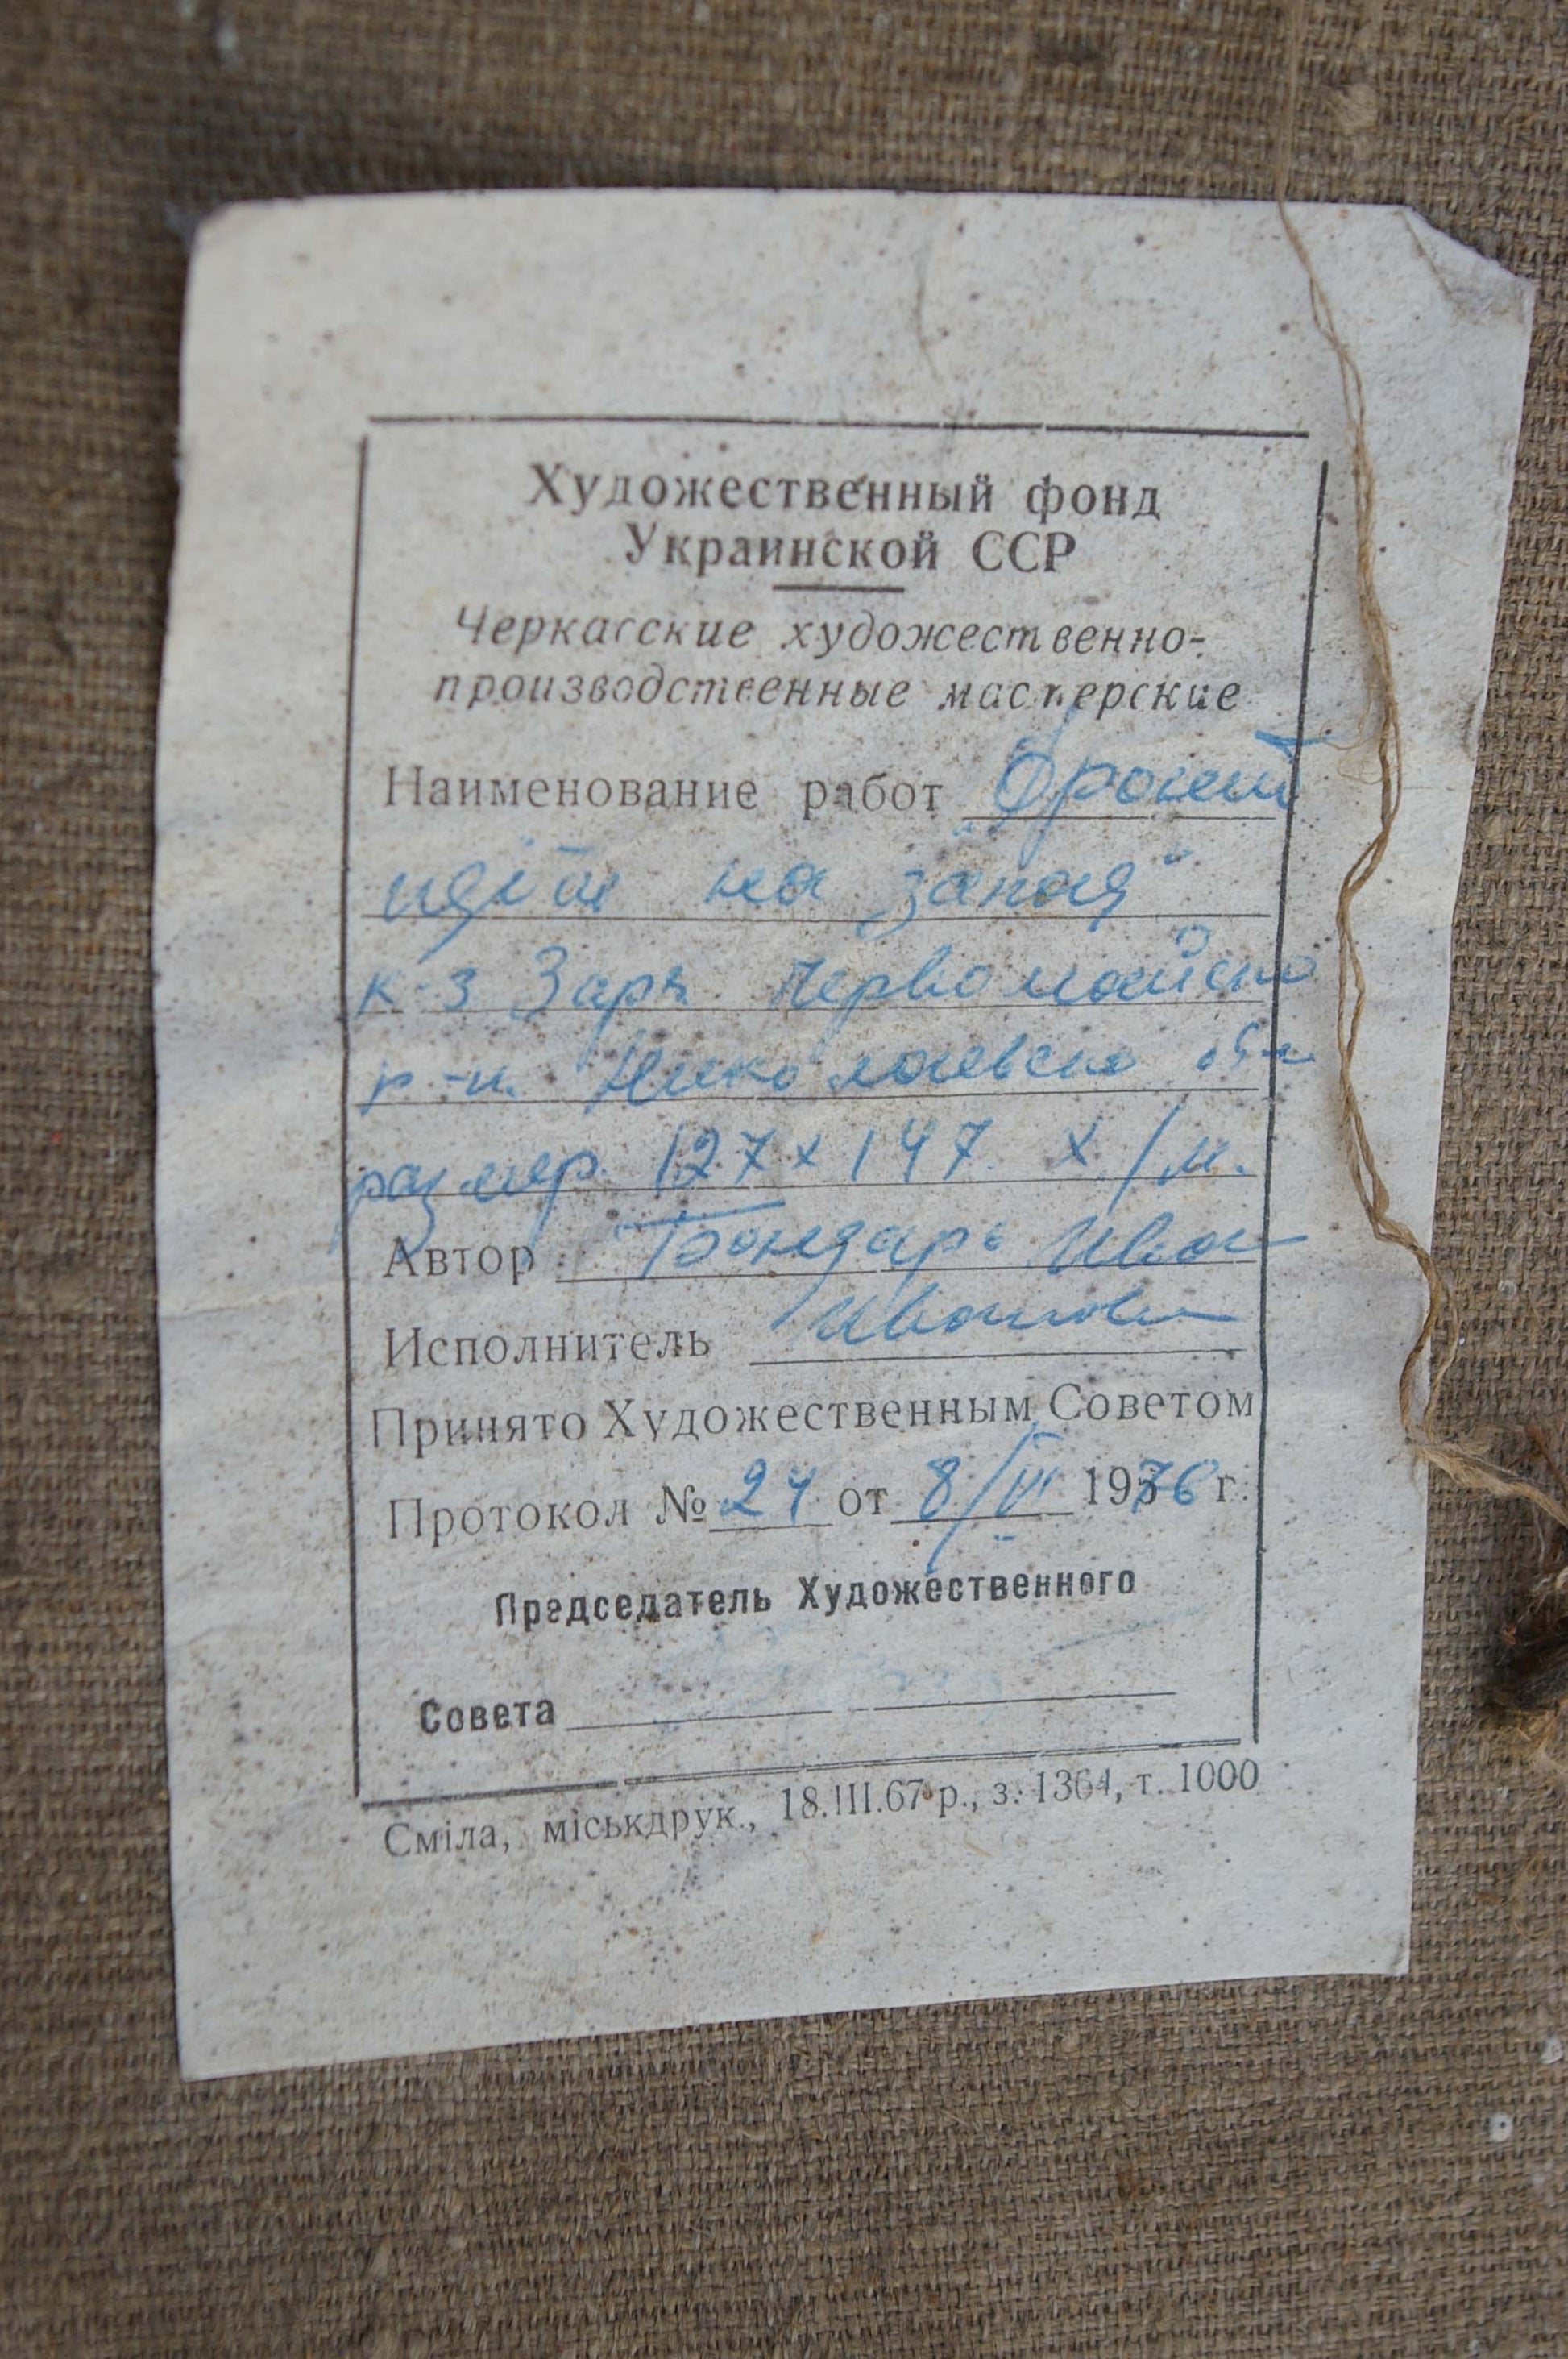 Художественный фонд
Украинской ССР
Черкасские художественно-
производственные мастерские
Наименование работ „Фронт
идёт на запад“
к-з Заря Первомайско
р-н. Николаевско обл
размер 127х147 х/м.
Автор Бондарь Иван
Исполнитель Иванович
Принято Художественным Советом
Протокол № 24 от 8/VI 1976 г.
Председатель Художественного
Совета
Сміла, міськдрук., 18.III.67 р., з. 1364, т. 1000